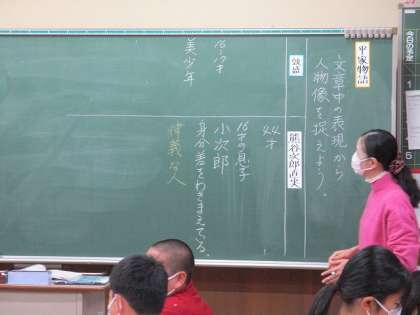 平家物語
文章中の表現から
人物像を捉えよう。
敦盛
16~17才
美少年
熊谷次郎直実
44才
16才の息子
小次郎
身分差をわきまえている。
律義な人
今日の予定
6